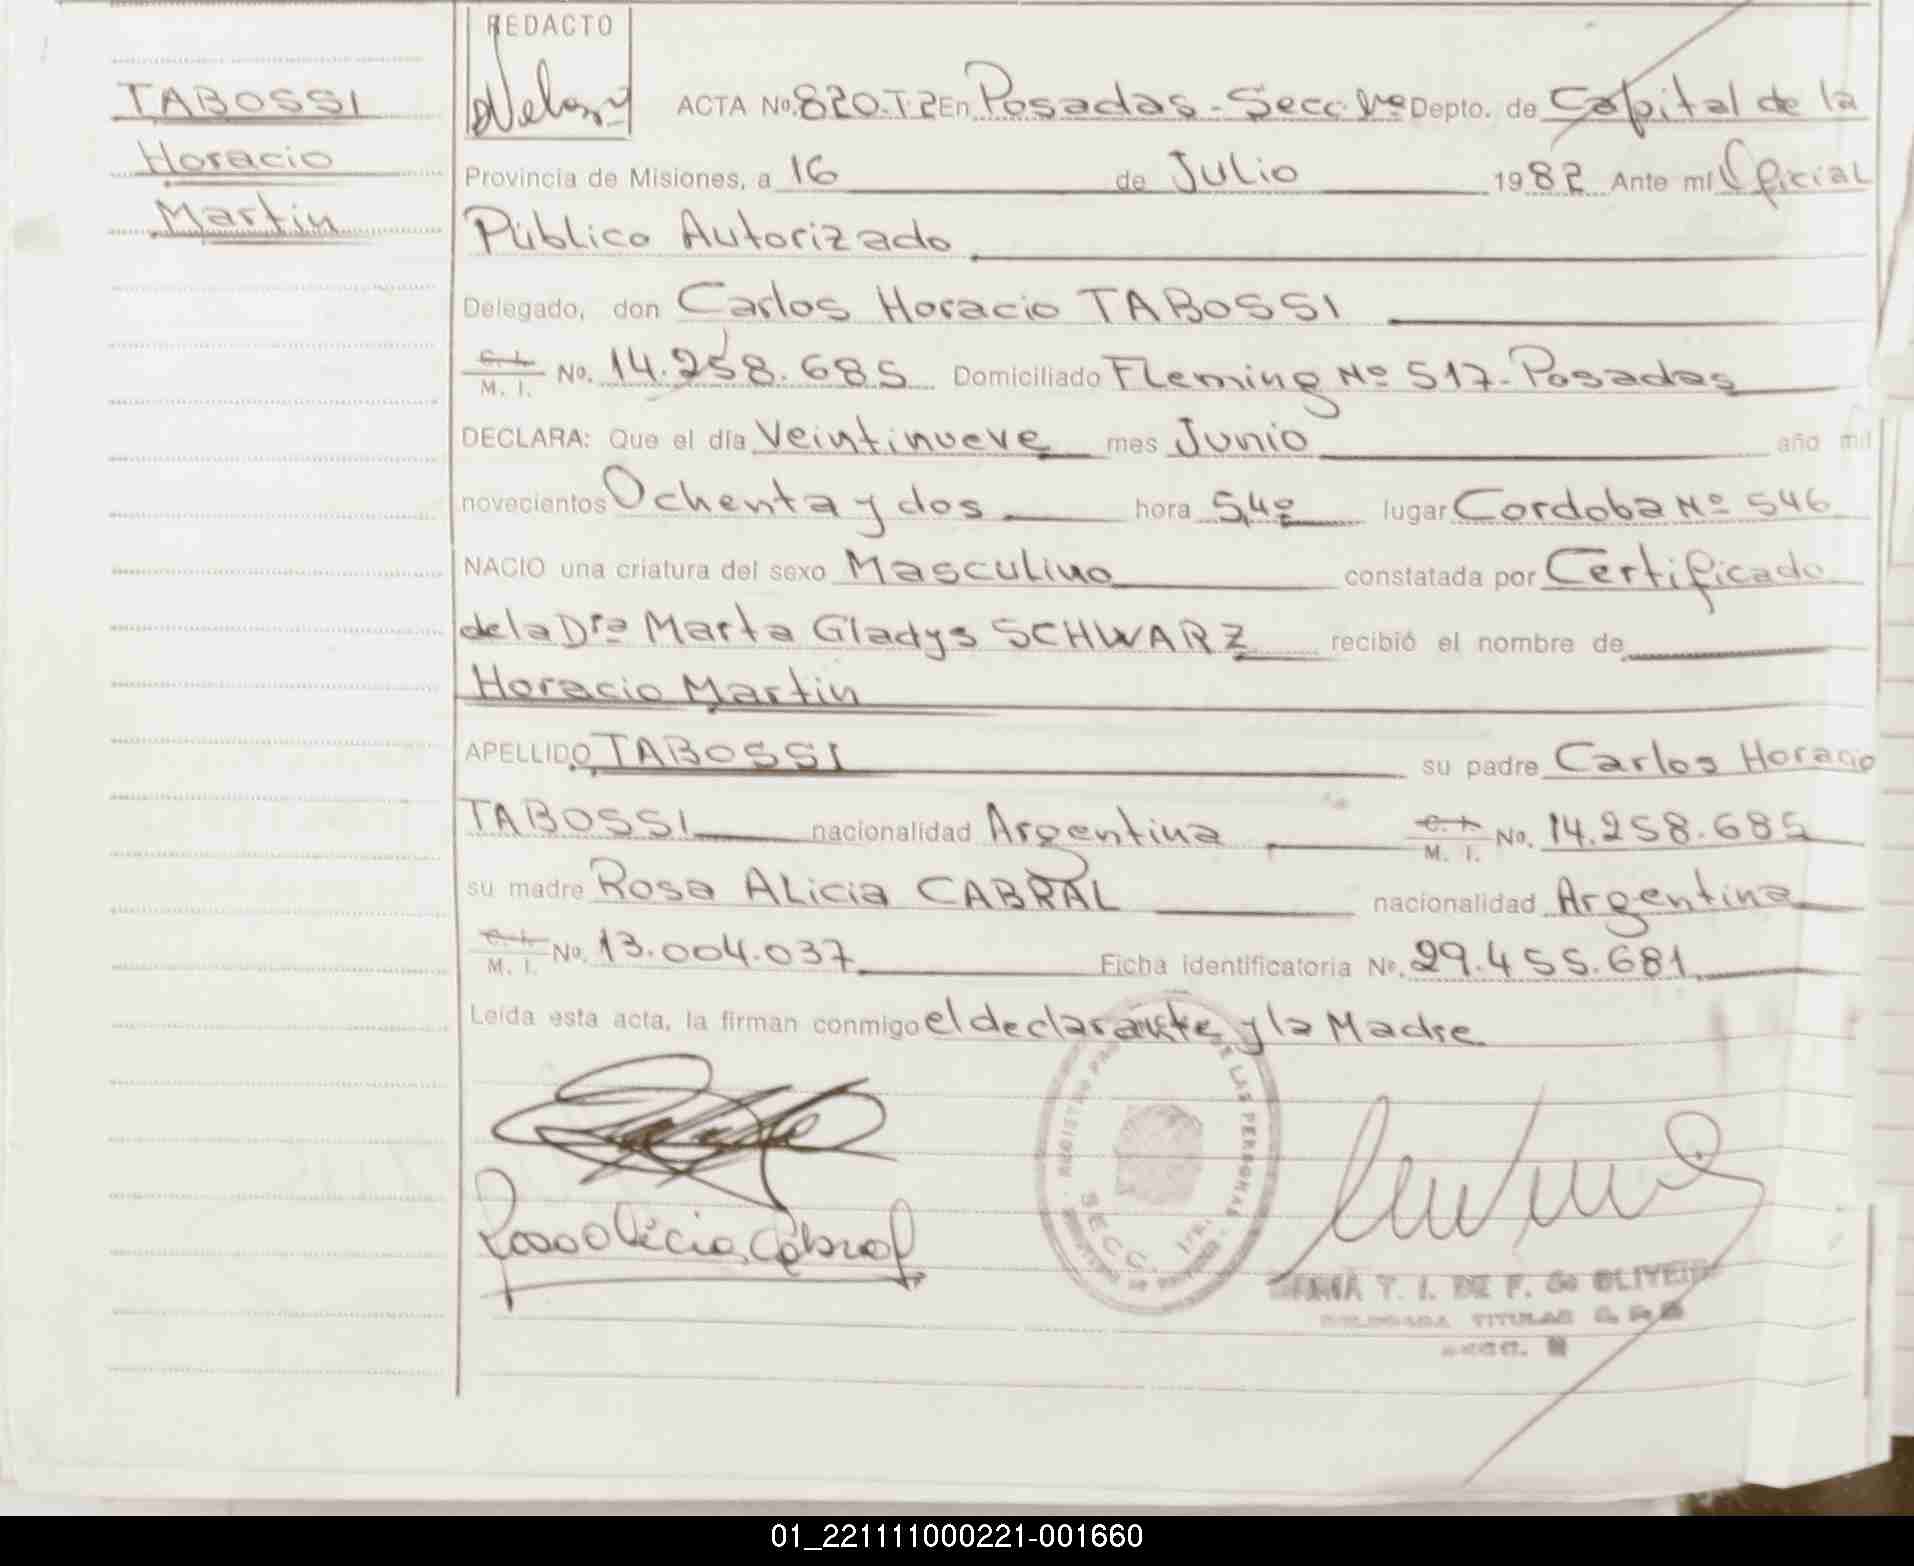 REDACTO
TABOSSI
Horacio
Martin
ACTA No. 820.T.2 En Posadas - Secc. 1ra Depto. de Capital de la
Provincia de Misiones, a 16 de Julio 1982 Ante mí Oficial
Público Autorizado
Delegado, don Carlos Horacio TABOSSI
C. I. M. I. No. 14.258.685 Domiciliado Fleming Nº 517 - Posadas
DECLARA: Que el día Veintinueve mes Junio año mil
novecientos Ochenta y dos hora 5,40 lugar Cordoba Nº 546
NACIO una criatura del sexo Masculino constatada por Certificado
de la Dra Marta Gladys SCHWARZ recibió el nombre de
Horacio Martin
APELLIDO TABOSSI su padre Carlos Horacio
TABOSSI nacionalidad Argentina C. I. M. I. No. 14.258.685
su madre Rosa ALicia CABRAL nacionalidad Argentina
C. I. M. I. No. 13.004.037 Ficha identificatoria No. 29.455.681
Leída esta acta, la firman conmigo el declarante y la Madre
DE LAS PERSONAS
SECC. 1ra.
Rosa Alicia Cabral
T. I. DE F. de OLIVEIRA
TITULAR
01_221111000221-001660